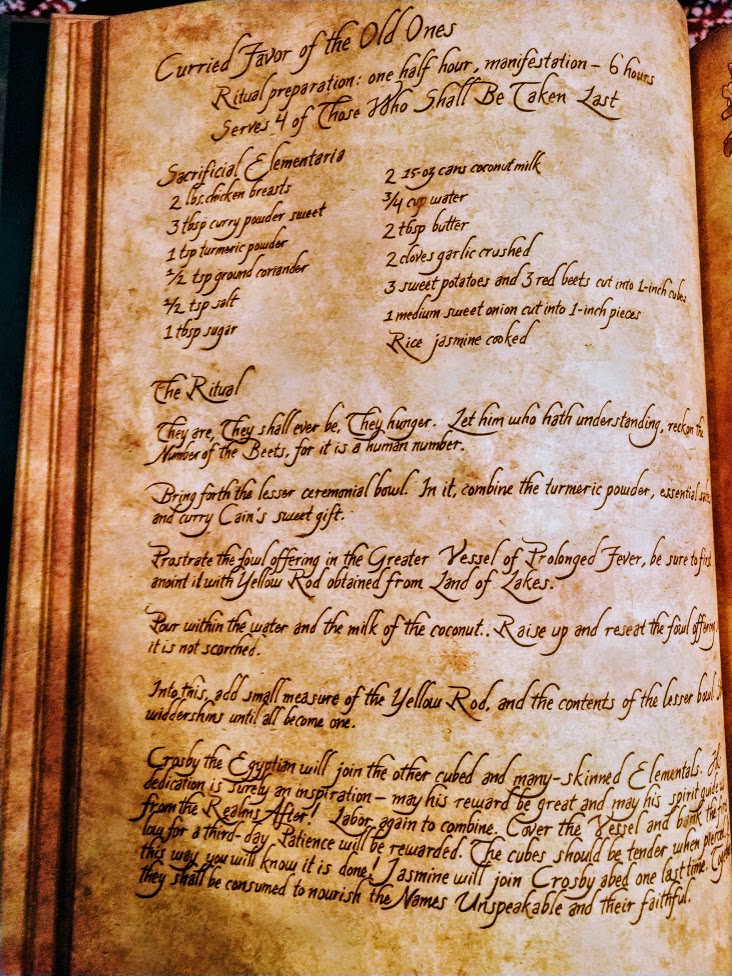 Curried Favor of the Old Ones
Ritual preparation: one half hour, manifestation – 6 hours
Serves 4 of Those Who Shall Be Taken Last
Sacrificial Elementaria
2 lbs. chicken breasts
3 tbsp curry powder sweet
1 tsp turmeric powder
1/2 tsp ground coriander
1/2 tsp salt
1 tbsp sugar
2 15-oz cans coconut milk
3/4 cup water
2 tbsp butter
2 cloves garlic crushed
3 sweet potatoes and 3 red beets cut into 1-inch cubes
1 medium sweet onion cut into 1-inch pieces
Rice jasmine cooked
The Ritual
They are, They shall ever be, They hunger. Let him who hath understanding, reckon the
Number of the Beets, for it is a human number.
Bring forth the lesser ceremonial bowl. In it, combine the turmeric powder, essential
and curry Cain's sweet gift.
Prostrate the foul offering in the Greater Vessel of Prolonged Fever, be sure to first
anoint it with Yellow Rod obtained from Land of Lakes.
Pour within the water and the milk of the coconut.. Raise up and reseat the foul offering
it is not scorched.
Into this, add small measure of the Yellow Rod, and the contents of the lesser bowl.
widdershins until all become one.
Crosby the Egyptian will join the other cubed and many-skinned Elementals.
dedication is surely an inspiration – may his reward be great and may his spirit guide
from the Realms After! Labor again to combine. Cover the Vessel and bank the
low for a third-day. Patience will be rewarded. The cubes should be tender when pierced.
this way you will know it is done! Jasmine will join Crosby abed one last time.
they shall be consumed to nourish the Names Unspeakable and their faithful.